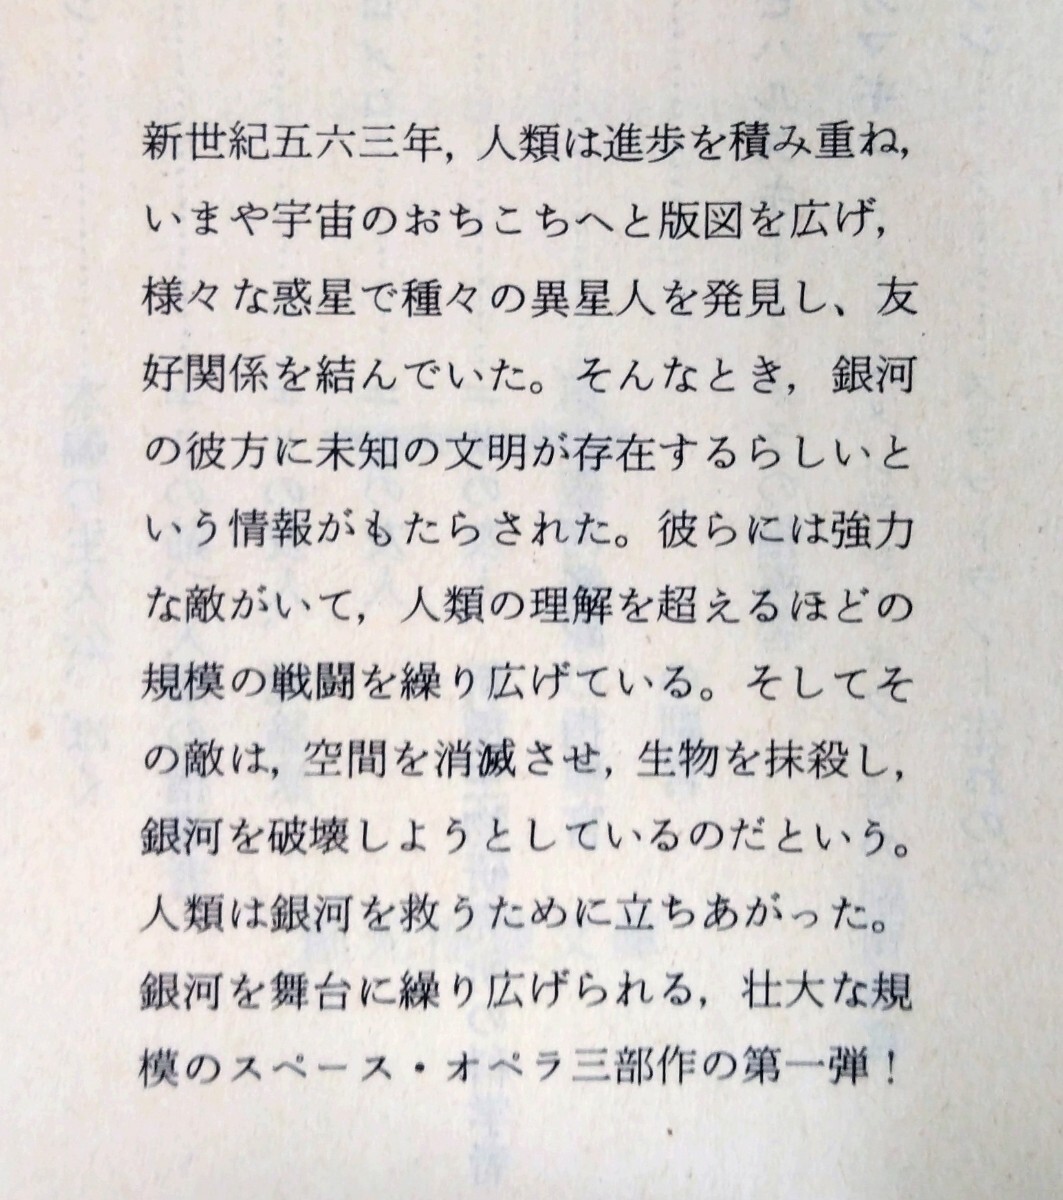 新世紀五六三年，人類は進歩を積み重ね，
いまや宇宙のおちこちへと版図を広げ，
様々な惑星で種々の異星人を発見し、友
好関係を結んでいた。そんなとき，銀河
の彼方に未知の文明が存在するらしいと
いう情報がもたらされた。彼らには強力
な敵がいて，人類の理解を超えるほどの
規模の戦闘を繰り広げている。そしてそ
の敵は，空間を消滅させ，生物を抹殺し，
銀河を破壊しようとしているのだという。
人類は銀河を救うために立ちあがった。
銀河を舞台に繰り広げられる，壮大な規
模のスペース・オペラ三部作の第一弾！